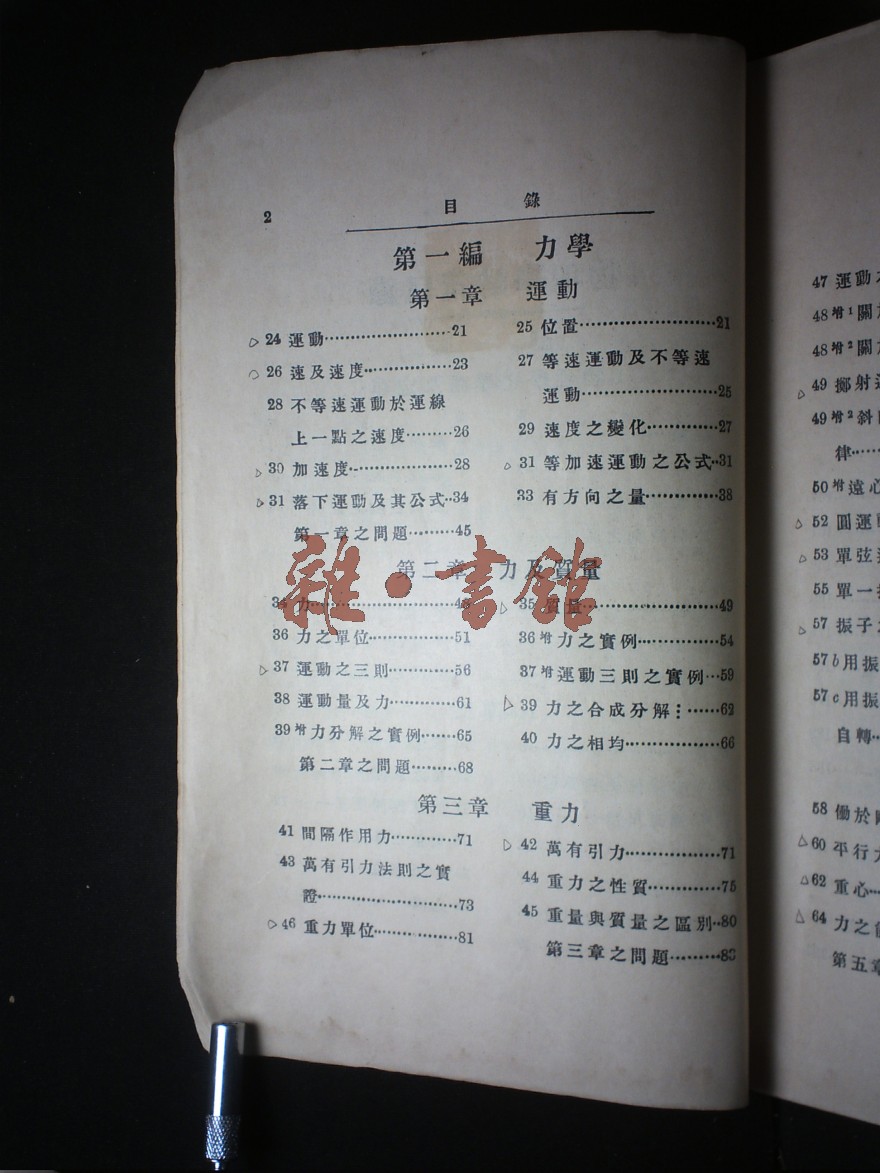 2
目 錄
第一編 力學
第一章 運動
24 運動……………………21
25 位置……………………21
26 速及速度………………23
27 等速運動及不等速
運動……………………25
28 不等速運動於運線
上一點之速度………26
29 速度之變化……………27
30 加速度…………………28
31 等加速運動之公式…31
31 落下運動及其公式…34
33 有方向之量……………38
第一章之問題………45
第二章 力及質量
雜·書館
34 力
35 質量……………………49
36 力之單位………………51
36增 力之實例……………54
37 運動之三則……………56
37增 運動三則之實例…59
38 運動量及力……………61
39 力之合成分解…………62
39增 力分解之實例………65
40 力之相均………………66
第二章之問題………68
第三章 重力
41 間隔作用力……………71
42 萬有引力………………71
43 萬有引力法則之實
證………………………73
44 重力之性質……………75
45 重量與質量之區別…80
46 重力單位………………81
第三章之問題………83
47 運動
48增1 關
48增2 關
49 擲射
49增2 斜
律……
50增 遠心
52 圓運
53 單弦
55 單一
57 振子
57b 用振
57c 用振
自轉…
58 働於
60 平行
62 重心…
64 力之
第五章